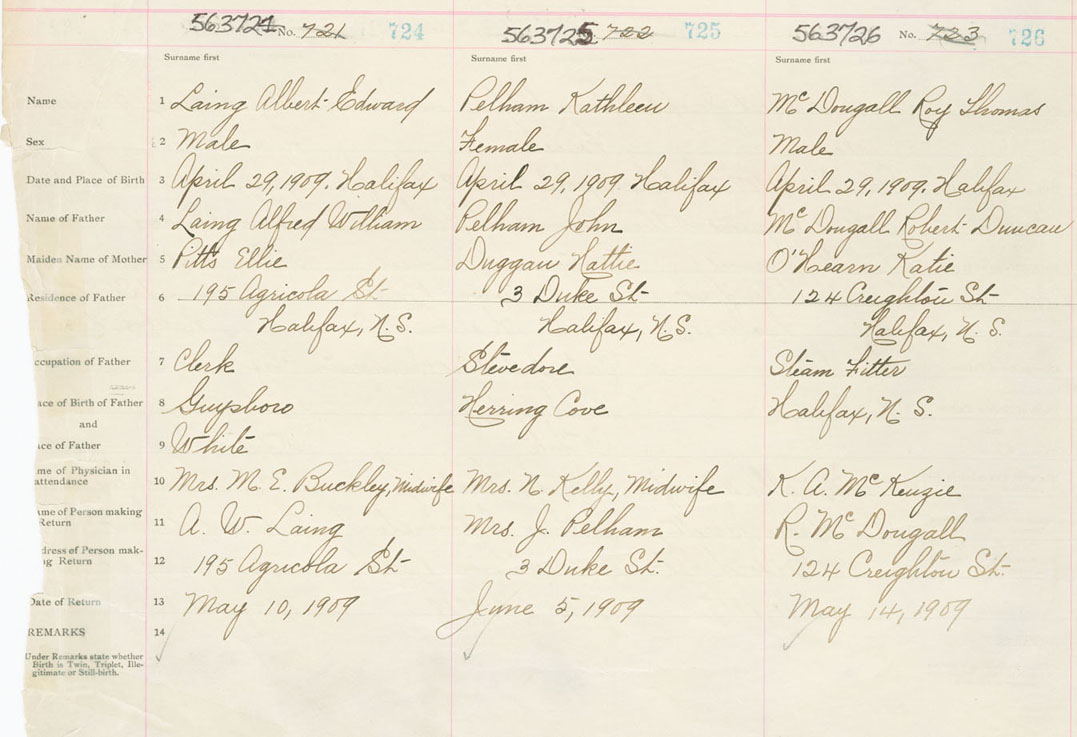 563724 No. 721 724 563725 722 725 563726 No. 723 726
Surname first Surname first Surname first
Name 1 Laing Albert Edward Pelham Kathleen McDougall Roy Thomas
Sex 2 Male Female Male
Date and Place of Birth 3 April 29, 1909. Halifax April 29, 1909 Halifax April 29, 1909. Halifax
Name of Father 4 Laing Alfred William Pelham John McDougall Robert Duncan
Maiden Name of Mother 5 Pitts Ellie Duggan Hattie O'Hearn Katie
Residence of Father 6 195 Agricola St 3 Duke St 124 Creighton St
Halifax, N.S. Halifax, N.S. Halifax, N.S.
ccupation of Father 7 Clerk Stevedore Steam Fitter
ace of Birth of Father 8 Guysboro Herring Cove Halifax, N.S.
and
ace of Father 9 White
me of Physician in
attendance 10 Mrs. M. E. Buckley, Midwife Mrs. N. Kelly, Midwife K. A. McKenzie
ame of Person making
Return 11 A. W. Laing Mrs. J. Pelham R. McDougall
dress of Person mak-
ng Return 12 195 Agricola St 3 Duke St. 124 Creighton St.
Date of Return 13 May 10, 1909 June 5, 1909 May 14, 1909
REMARKS 14
Under Remarks state whether
Birth is Twin, Triplet, Ille-
gitimate or Still-birth.